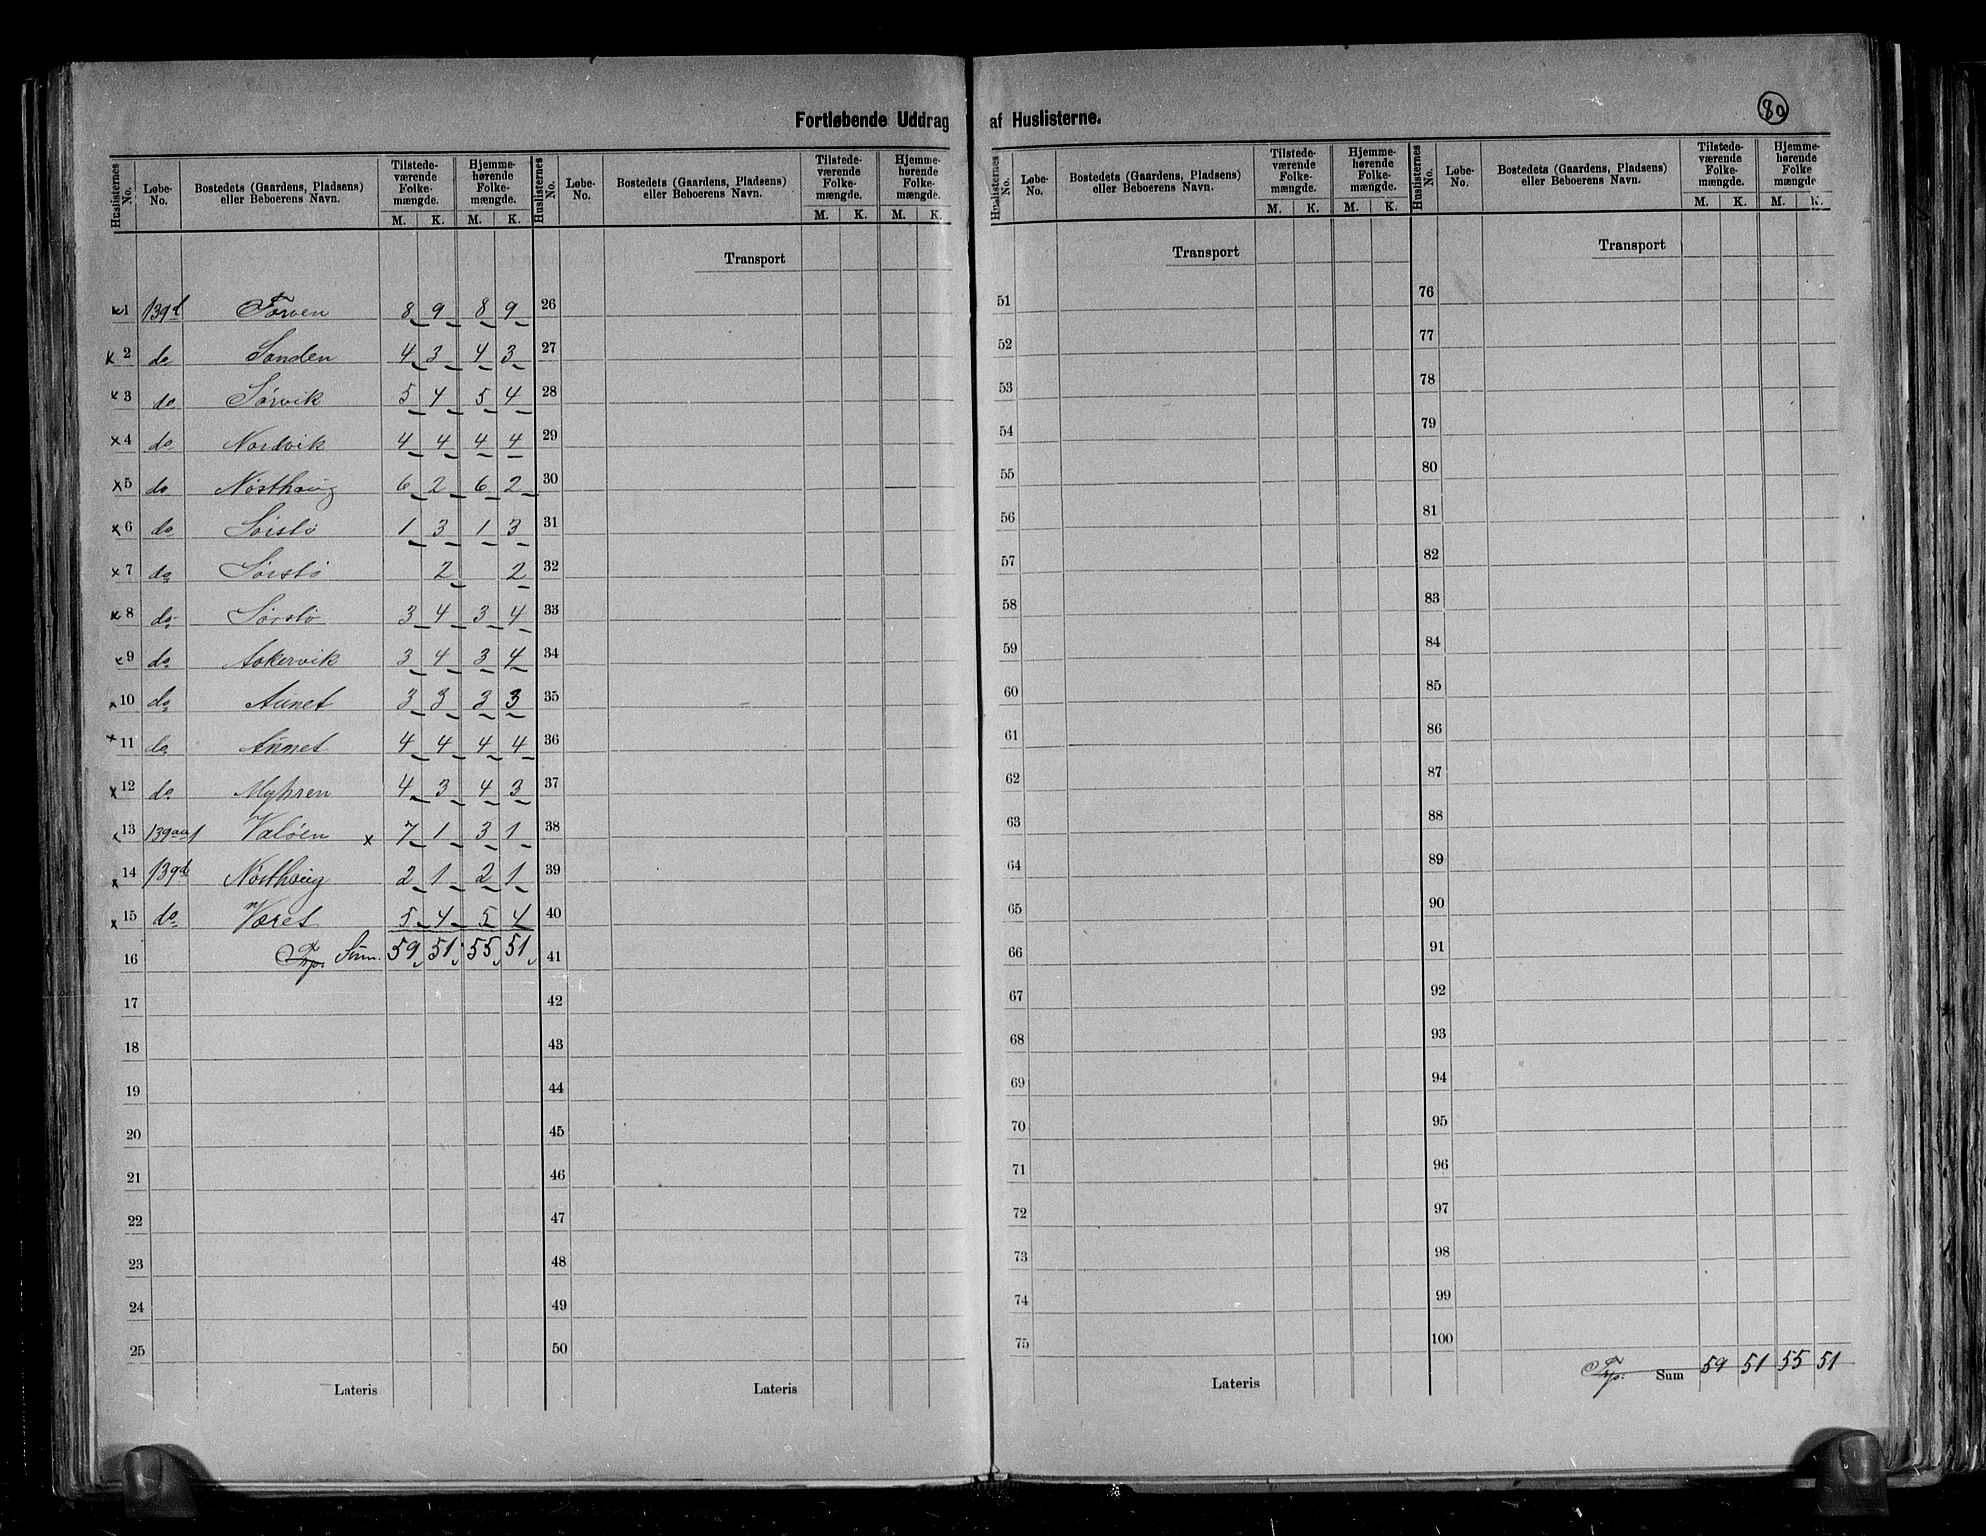 Fortløbende Uddrag af Huslisterne.
80
Huslisternes No. Løbe-No. Bostedets (Gaardens, Pladsens) eller Beboerens Navn. Tilstedeværende Folkemængde. M. K. Hjemmehørende Folkemængde. M. K.
Huslisternes No. Løbe-No. Bostedets (Gaardens, Pladsens) eller Beboerens Navn. Tilstedeværende Folkemængde. M. K. Hjemmehørende Folkemængde. M. K.
Huslisternes No. Løbe-No. Bostedets (Gaardens, Pladsens) eller Beboerens Navn. Tilstedeværende Folkemængde. M. K. Hjemmehørende Folkemængde. M. K.
Huslisternes No. Løbe-No. Bostedets (Gaardens, Pladsens) eller Beboerens Navn. Tilstedeværende Folkemængde. M. K. Hjemmehørende Folkemængde M. K.
x1 139d Torven 8 9 8 9
x 2 do Sanden 4 3 4 3
x 3 do Sørvik 5 4 5 4
x 4 do Nordvik 4 4 4 4
x 5 do Nøsthaug 6 2 6 2
x 6 do Sørstø 1 3 1 3
x 7 do Sørstø 2 2
x 8 do Sørstø 3 4 3 4
x 9 do Aakervik 3 4 3 4
x 10 do Aunet 3 3 3 3
x 11 do Aunet 4 4 4 4
x 12 do Myhren 4 3 4 3
x 13 139 Valøen x 7 1 3 1
x 14 139d Nøsthaug 2 1 2 1
x 15 do Været 5 4 5 4
16 Trp. Sum. 59 51 55 51
17
18
19
20
21
22
23
24
25
Lateris
Transport
26
27
28
29
30
31
32
33
34
35
36
37
38
39
40
41
42
43
44
45
46
47
48
49
50
Lateris
Transport
51
52
53
54
55
56
57
58
59
60
61
62
63
64
65
66
67
68
69
70
71
72
73
74
75
Lateris
Transport
76
77
78
79
80
81
82
83
84
85
86
87
88
89
90
91
92
93
94
95
96
97
98
99
100
Trp. Sum 59 51 55 51